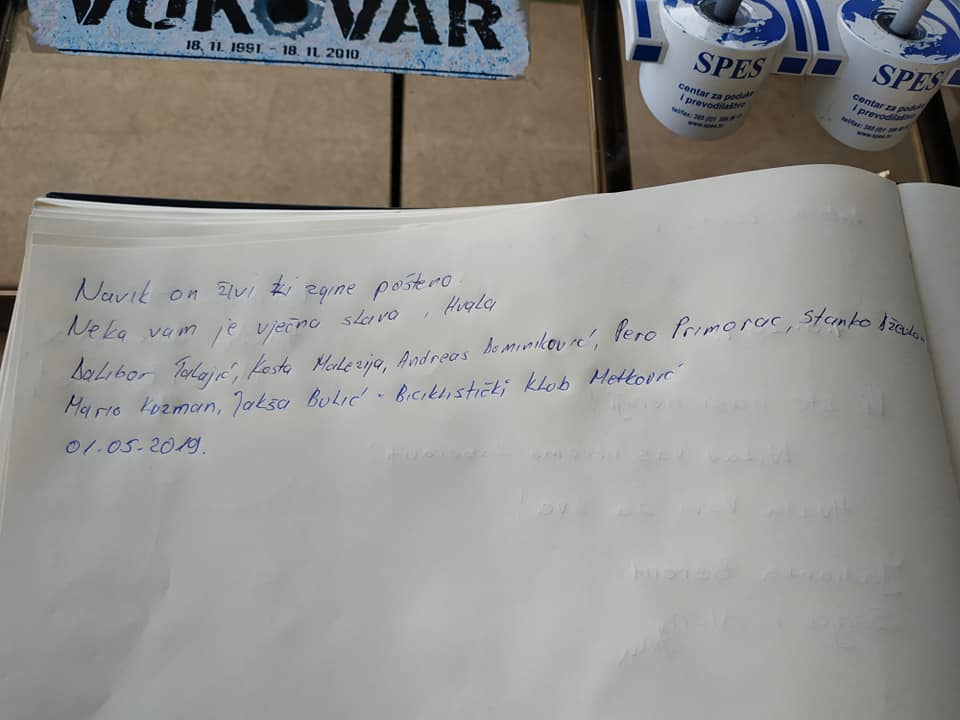 VUKOVAR
18. 11. 1991 - 18. 11. 2010
SPES
centar za poduke
i prevodilaštvo
www.spes.hr
SPES
centar za poduke
i prevodilaštvo
www.spes.hr
Navik on živi ki zgine pošteno.
Neka vam je vječna slava, Hvala
Dalibor Talajić, Kosta Malezija, Andreas Dominiković, Pero Primorac, Stanko
Mario Kuzman, Jakša Bulić - Biciklistički klub Metković
01.05.2019.